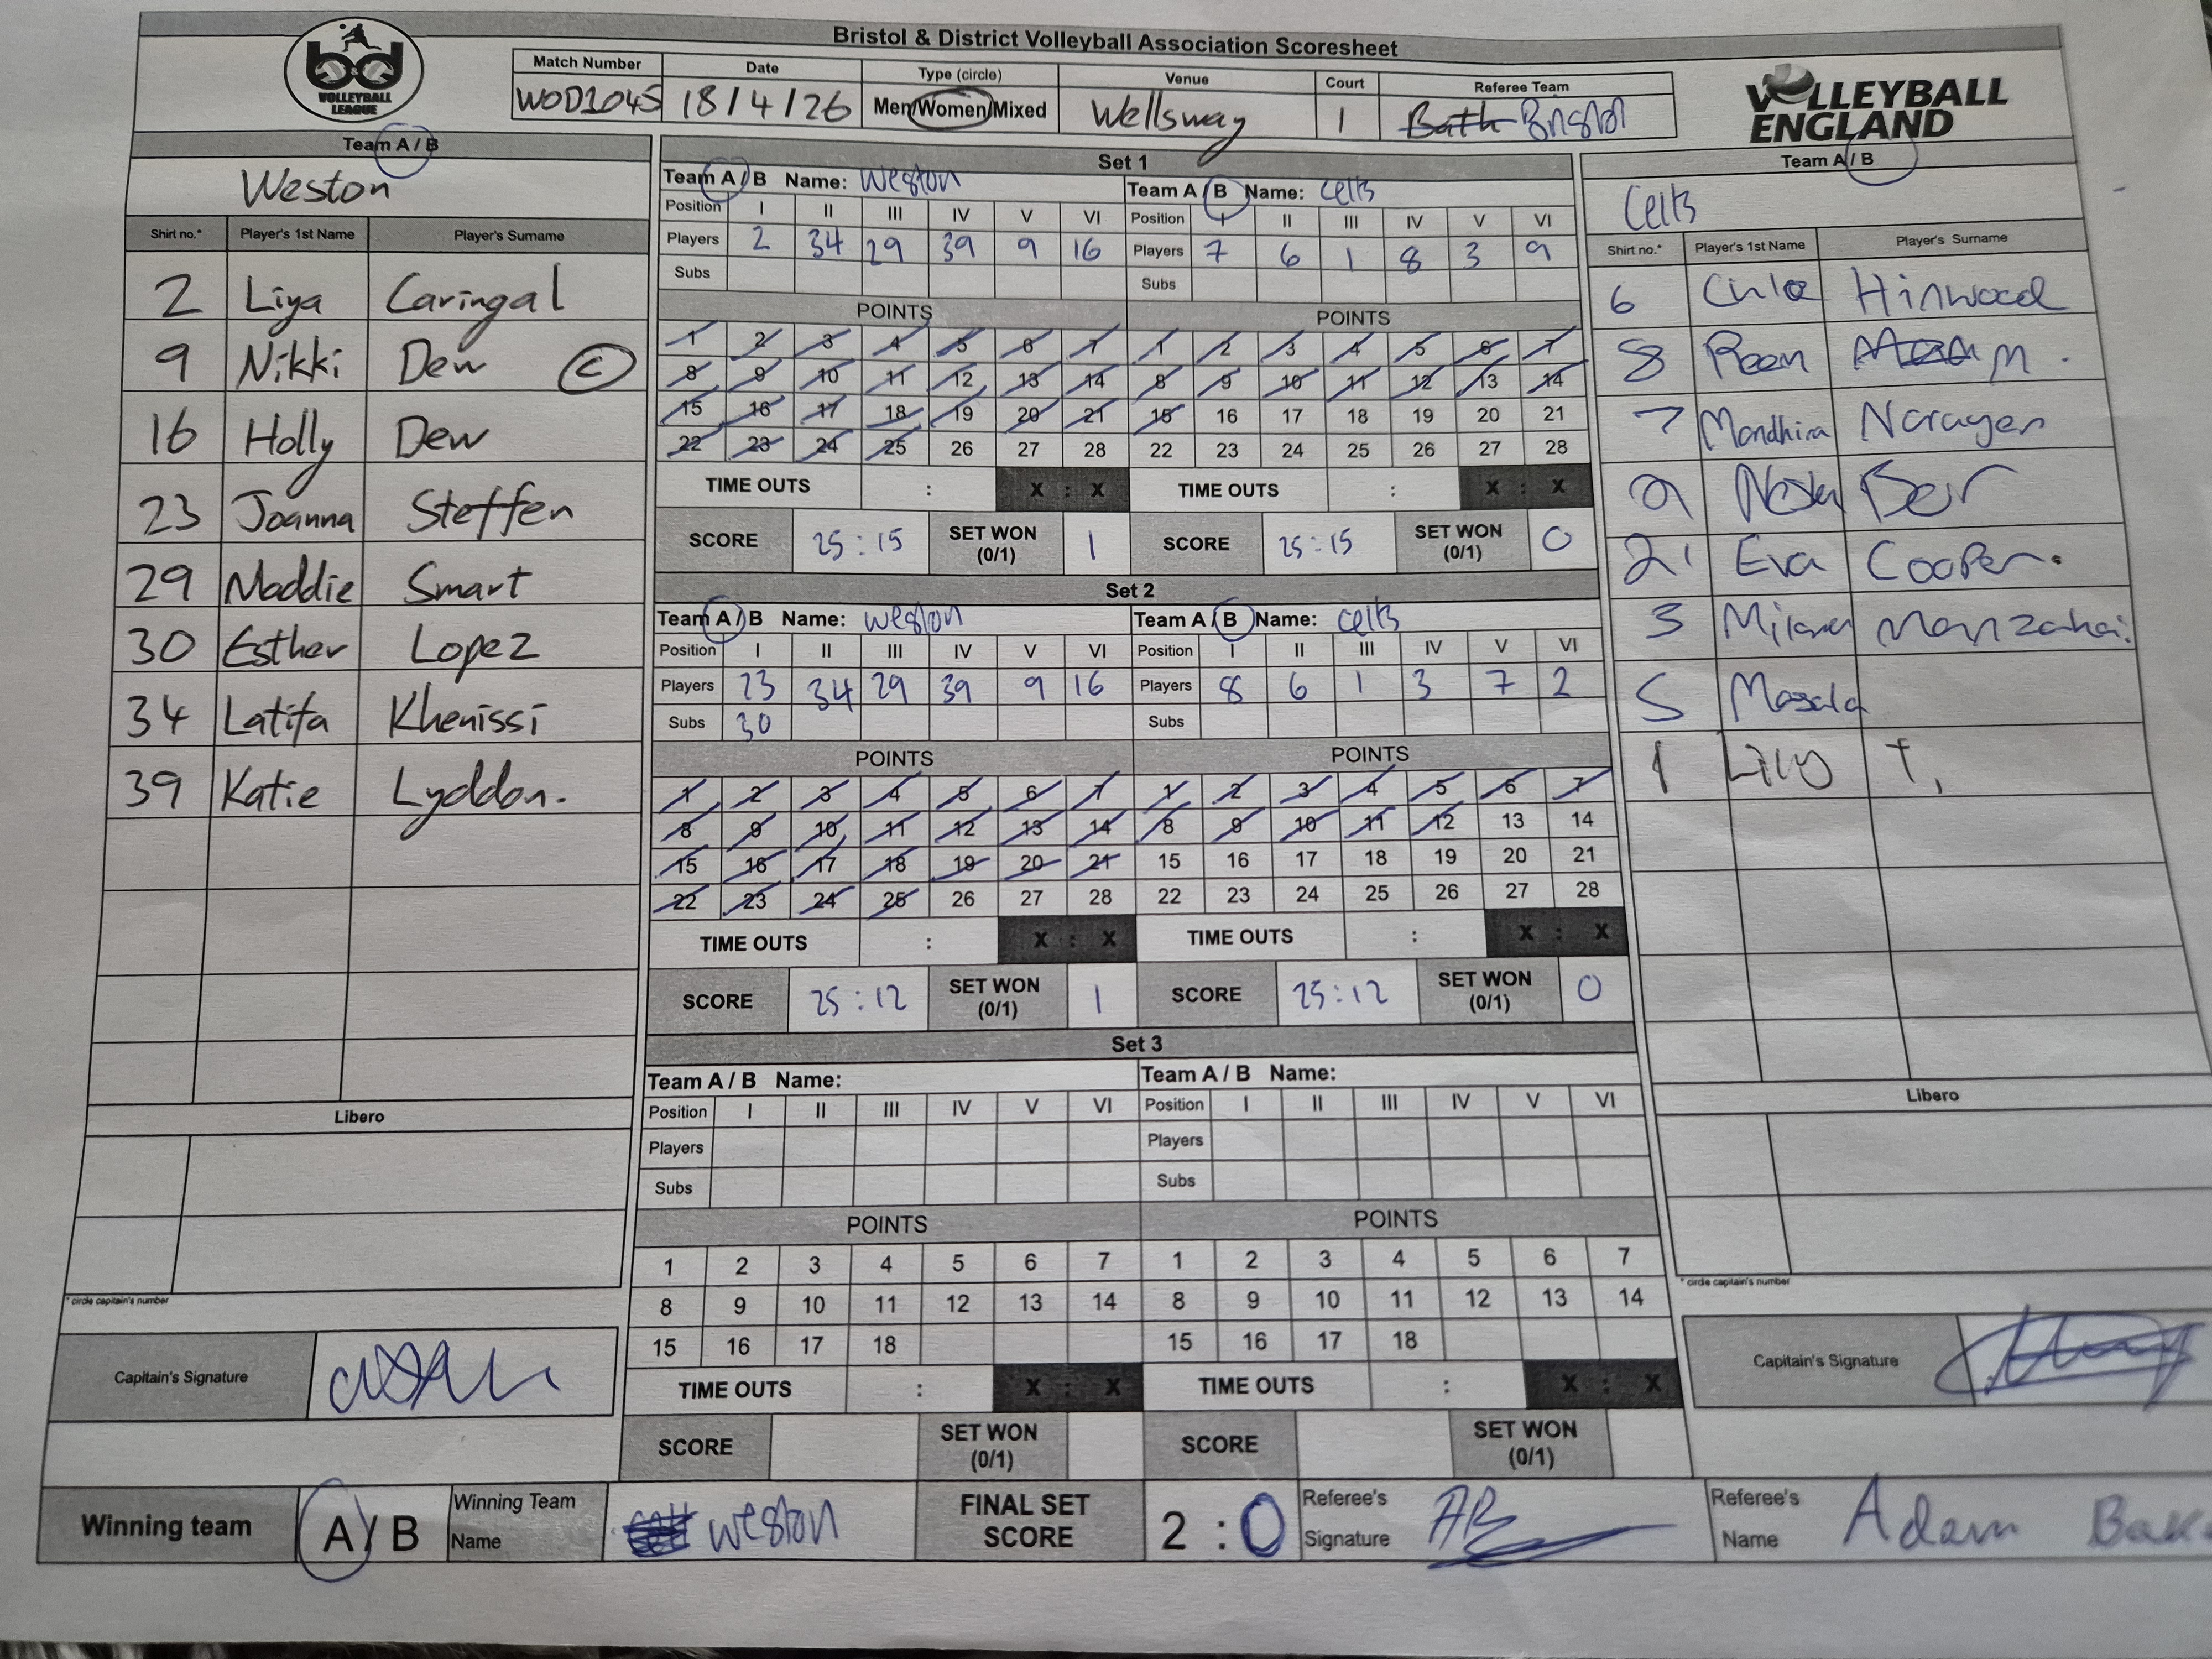 Bristol & District Volleyball Association Scoresheet
bd VOLLEYBALL LEAGUE
Match Number Date Type (circle) Venue Court Referee Team
WOD1045 18/4/26 Men/Women/Mixed Wellsway 1 Bath Bristol
VOLLEYBALL ENGLAND
Team A / B
Weston
Shirt no.* Player's 1st Name Player's Surname
2 Liya Caringal
9 Nikki Dew C
16 Holly Dew
23 Joanna Steffen
29 Maddie Smart
30 Esther Lopez
34 Latifa Khenissi
39 Katie Lyddon.
Libero
* circle capitain's number
Capitain's Signature
Set 1
Team A / B Name: Weston
Position I II III IV V VI
Players 2 34 29 39 9 16
Subs
POINTS
1 2 3 4 5 6 7
8 9 10 11 12 13 14
15 16 17 18 19 20 21
22 23 24 25 26 27 28
TIME OUTS : X : X
SCORE 25:15 SET WON (0/1) 1
Team A / B Name: Celts
Position I II III IV V VI
Players 7 6 1 8 3 9
Subs
POINTS
1 2 3 4 5 6 7
8 9 10 11 12 13 14
15 16 17 18 19 20 21
22 23 24 25 26 27 28
TIME OUTS : X : X
SCORE 25:15 SET WON (0/1) 0
Set 2
Team A / B Name: Weston
Position I II III IV V VI
Players 23 34 29 39 9 16
Subs 30
POINTS
1 2 3 4 5 6 7
8 9 10 11 12 13 14
15 16 17 18 19 20 21
22 23 24 25 26 27 28
TIME OUTS : X : X
SCORE 25:12 SET WON (0/1) 1
Team A / B Name: Celts
Position I II III IV V VI
Players 8 6 1 3 7 2
Subs
POINTS
1 2 3 4 5 6 7
8 9 10 11 12 13 14
15 16 17 18 19 20 21
22 23 24 25 26 27 28
TIME OUTS : X : X
SCORE 25:12 SET WON (0/1) 0
Set 3
Team A / B Name:
Position I II III IV V VI
Players
Subs
POINTS
1 2 3 4 5 6 7
8 9 10 11 12 13 14
15 16 17 18
TIME OUTS : X : X
SCORE SET WON (0/1)
Team A / B Name:
Position I II III IV V VI
Players
Subs
POINTS
1 2 3 4 5 6 7
8 9 10 11 12 13 14
15 16 17 18
TIME OUTS : X : X
SCORE SET WON (0/1)
Team A / B
Celts
Shirt no.* Player's 1st Name Player's Surname
6 Chloe Hinwood
8 M.
7 Mandhira Narayen
9
21 Eva Cooper.
3
5 Masala
1 Lily T.
Libero
* circle capitain's number
Capitain's Signature
Winning team A / B Winning Team Name Weston FINAL SET SCORE 2 : 0 Referee's Signature AB Referee's Name Adam Bak